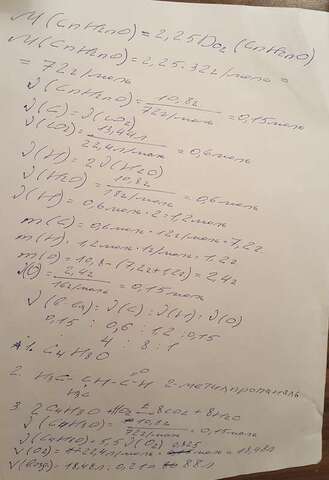 M(CnH2nO) = 2,25 DO2 (CnH2nO)
M(CnH2nO) = 2,25 · 32г/моль =
= 72г/моль
ν(CnH2nO) = 10,8г / 72г/моль = 0,15моль
ν(C) = ν(CO2)
ν(CO2) = 13,44л / 22,4л/моль = 0,6моль
ν(H) = 2ν(H2O)
ν(H2O) = 10,8г / 18г/моль = 0,6моль
ν(H) = 0,6моль · 2 = 1,2моль
m(C) = 0,6моль · 12г/моль = 7,2г
m(H) = 1,2моль · 1г/моль = 1,2г
m(O) = 10,8 - (7,2г + 1,2г) = 2,4г
ν(O) = 2,4г / 16г/моль = 0,15моль
ν(в-ва) : ν(C) : ν(H) : ν(O)
0,15 : 0,6 : 1,2 : 0,15
4 : 8 : 1
1. C4H8O
2. H3C - CH - C - H =O 2-метилпропаналь
H3C
3. 2C4H8O + 11O2 t= 8CO2 + 8H2O
ν(C4H8O) = 10,8г / 72г/моль = 0,15моль
ν(C4H8O) = 5,5 ν(O2) 0,825
V(O2) = 22,4л/моль · = 18,48л
V(возд) = 18,48л : 0,21 = 88л